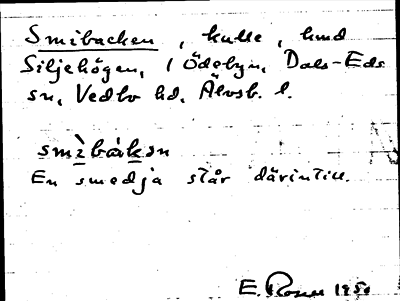 Smibacken, kulle, hmd
Siljehögen, i Ödebyn, Dals-Eds
sn, Vedbo hd, Älvsb. l.
smìbàkən
En smedja står därintill.
E. 1950